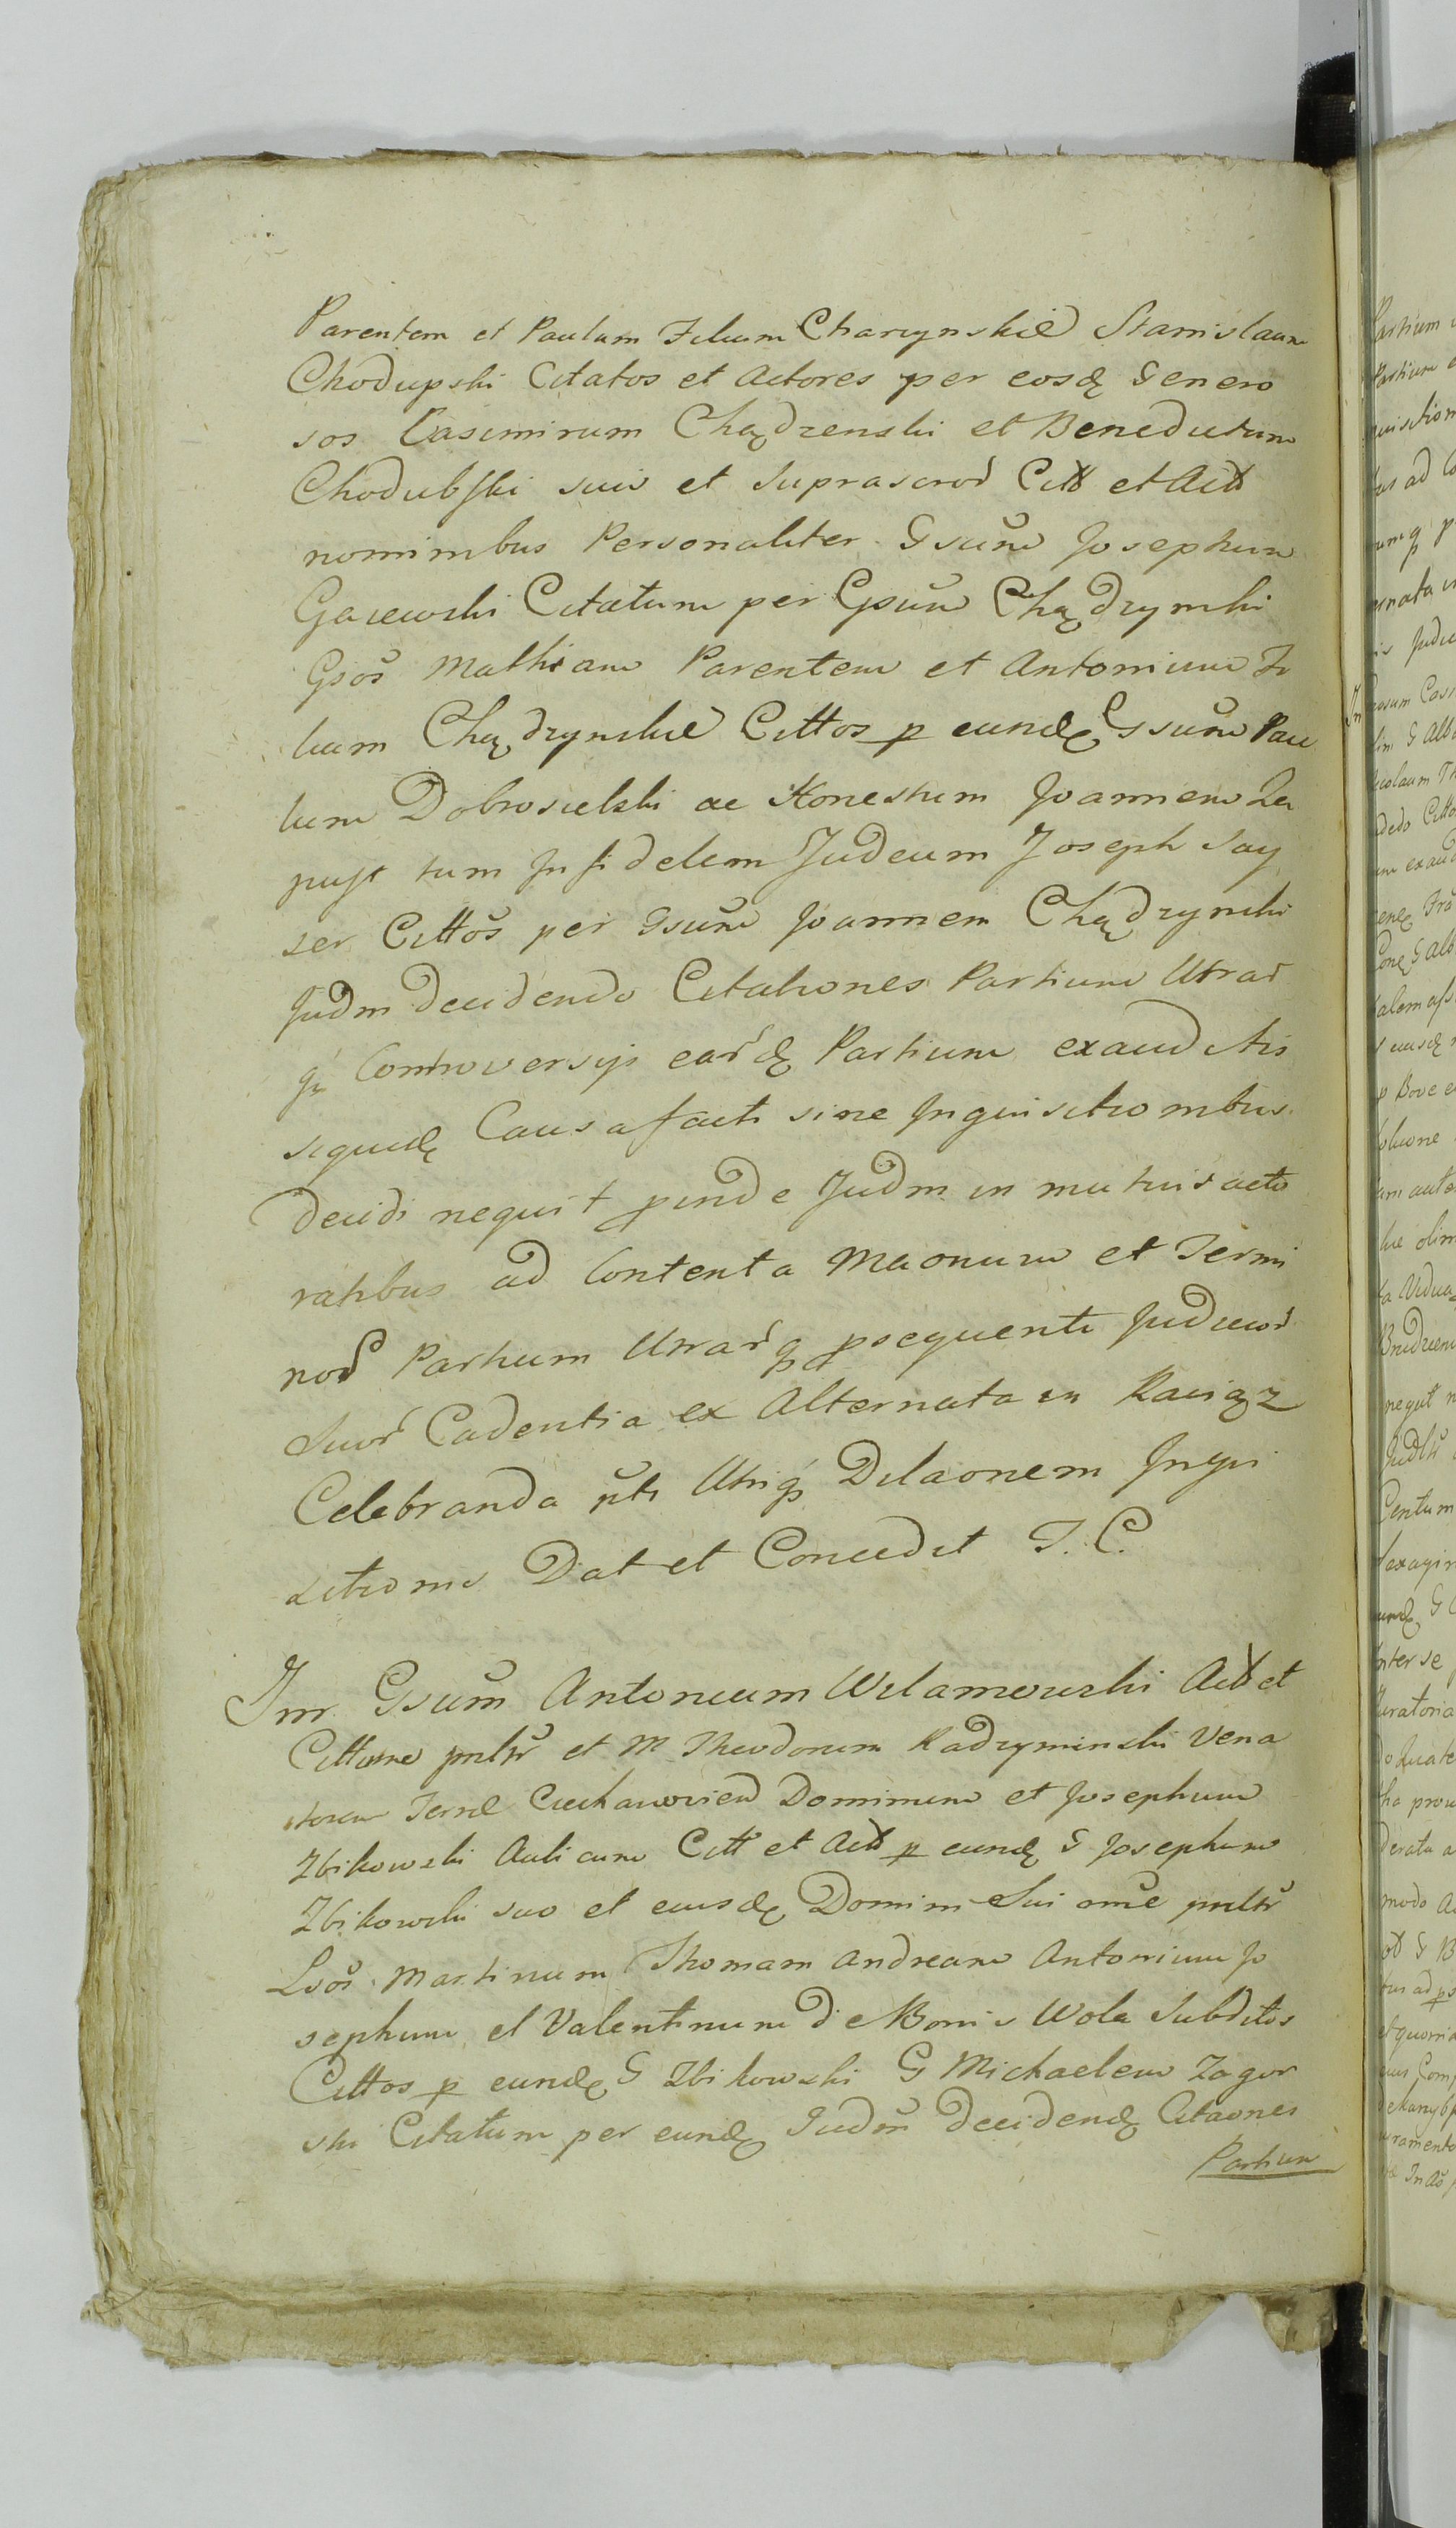 Parentem et Paulum Filium Charzynskie Stanislaum
Chodupski Citatos et Actores per eosdę Genero
sos Casimirum Chądzenski et Benedictum
Chodubski suis et suprascror Citt et Actt
nominibus Personaliter Gsum Josephum
Gaiewski Citatum per Gsum Chądzynski
Gsos Mathiam Parentem et Antonium Fi
lium Chądzynskie Cittos p eundę Gsum Pau
lum Dobrosielski ac Honestum Joannem
pust tum Infidelem Judeum Joseph Say
ser Cittos per Gsum Joannem Chądzynski
Judm decidendo Citationes Partium Utrar
q Controversys eardę Partium exauditis
siquidę Causa facti sine Inquisitionibus
decidi nequit pinde Judm in mutuis acto
ratibus ad Contenta Maonum et Termi
nor Partium Utrarq psequenti Judicior
suor Cadentia ex Alternata in Raciąz
Celebranda pti Utriq Dilaonem Inqui
sitionis Dat et Concedit J. C.
Inr Gsum Antonium Wilamowski Actt et
Cittum pnltr et M Theodorum Radzyminski Vena
torem Terræ Ciechanovien Dominum et Josephum
Zbikowski Aulicum Citt et Actt p eundę G Josephum
Zbikowski suo et eiusdę Domini Sui ome pnltr
Lsos Martinum Thomam Andream Antonium Jo
sephum et Valentinum de Bonis Wola Subditos
Cittos p eundę G Zbikowski G Michaelem Zagor
ski Citatum per eundę Judm decidendę Citaones
Partium